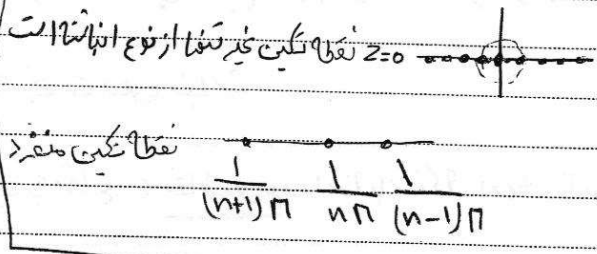 z=0 نقطه تکین غیر تنها از نوع انباشته است
نقطه تکین منفرد
1/(n+1)π 1/nπ 1/(n-1)π